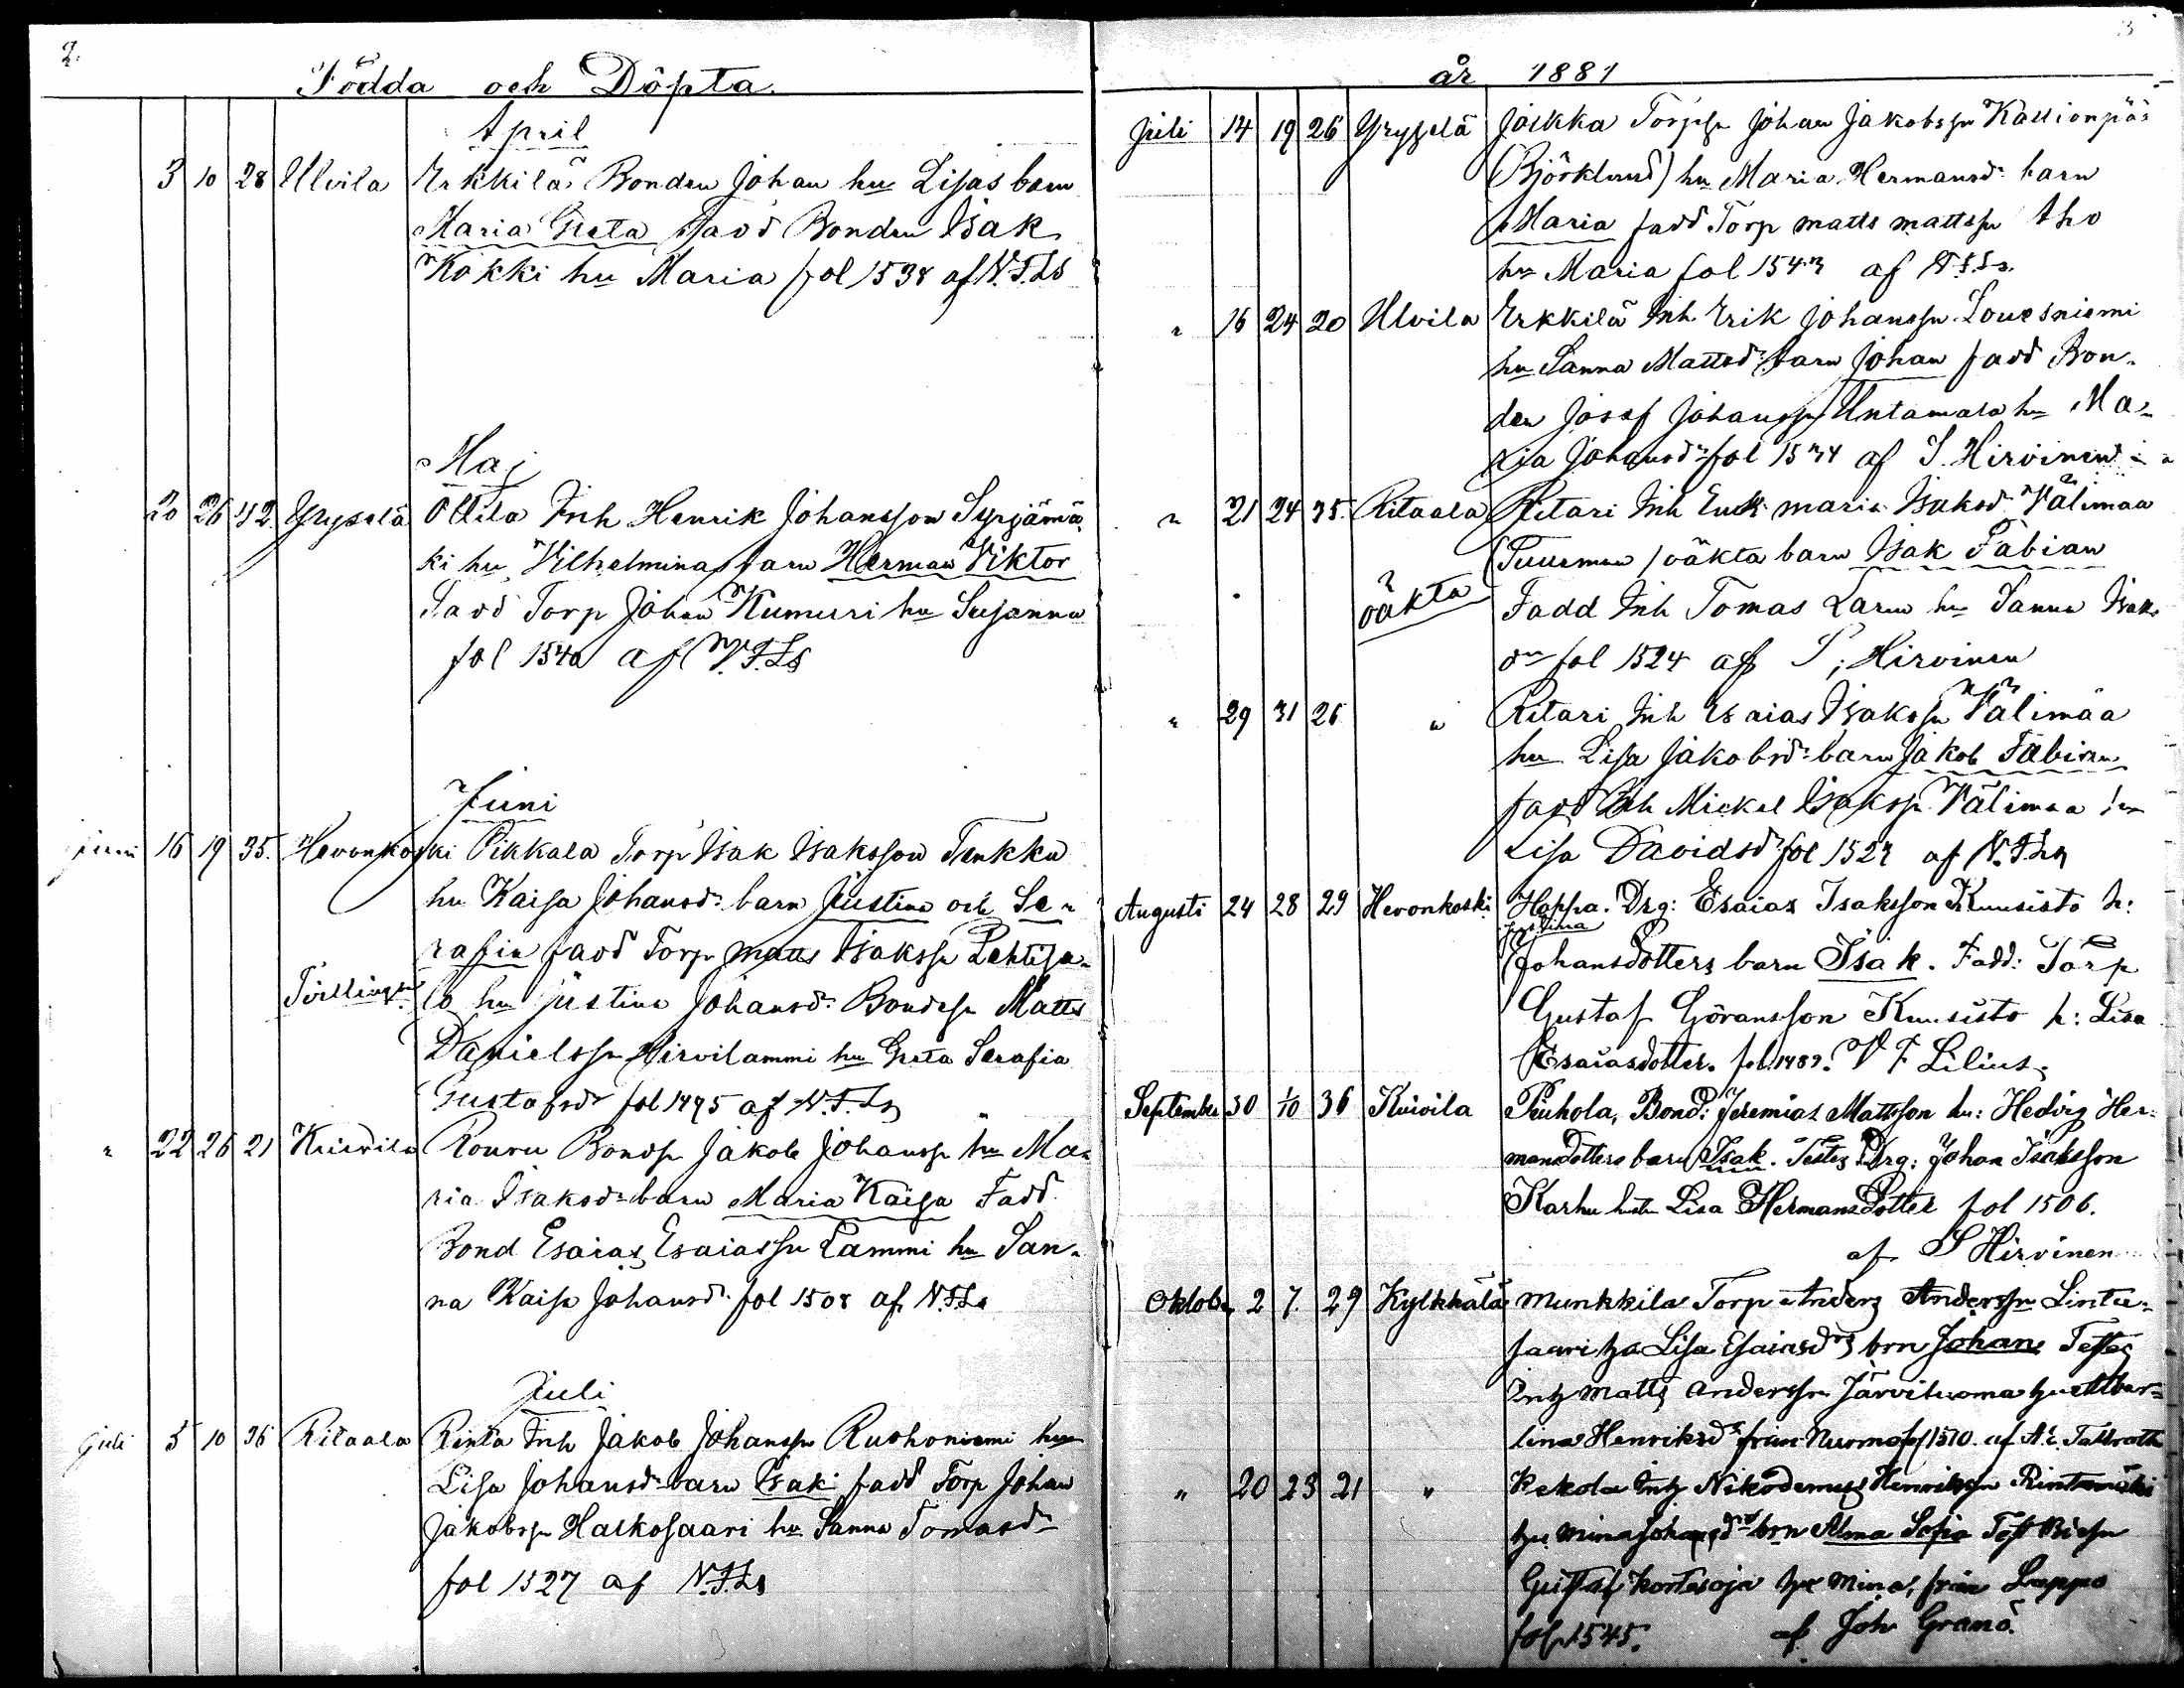 2.
Födda och Döpta.
April
3 10 28 Ulvila Erkkilä Bonden Johan hu Lisas barn
Maria Greta fadd Bonden Isak
Kokki hu Maria fol 1538 af V.F.Ls
Maj
20 26 42 Yrysela Ollila Inh Henrik Johansson Syrjämä-
ki hu Vilhelmina barn Herman Viktor
Fadd Torp Johan Kumuri hu Susanna
fol 1540 af V.F.Ls
Juni
juni 16 19 35. Hevonkoski Pikkala Torp Isak Isaksson Tunkku
hu Kaisa Johansdr barn Justina och Se-
rafia fadd Torp Matts Isakssn Lehtisa-
Tvillingar lo hu Justina Johansdr Bondesn Matts
Danielssn Hirvilammi hu Greta Serafia
Gustafsdr fol 1495 af V.F.Ls
" 22 26 21 Kuivila Rouru Bondsn Jakob Johanssn hu Ma-
ria Isaksdr barn Maria Kaisa Fadd
Bond Esaias Esaiassn Lammi hu San-
na Kaisa Johansdr fol 1508 af V.F.Ls
Juli
Juli 5 10 36 Ritaala Rinta Inh Jakob Johanssn Ruohoniemi hu
Lisa Johansdr barn Isaki fadd Torp Johan
Jakobssn Haikosaari hu Sanna Tomasdr
fol 1527 af V.F.Ls
3
år 1881
Juli 14 19 26 Yrysela Jaskka Torpsn Johan Jakobssn Kallionpää
(Björklund) hu Maria Hermansdr barn
Maria fadd Torp matts mattssn Aho
hu Maria fol 1543 af V.F.Ls.
" 16 24 20 Ulvila Erkkilä Inh Erik Johanssn Louesniemi
hu Sanna Mattsdr barn Johan fadd Bon-
den Josef Johanssn Untamala hu Ma-
ria Johansdr fol 1534 af S. Hirvinen
" 21 24 35. Ritaala Ritari Inh Enck maria Isaksdr Välimaa
(Tuurman) oäkta barn Isak Fabian
oäkta Fadd Inh Tomas Larm hu Sanna Isaks
dr fol 1524 af S. Hirvinen
" 29 31 26 " Ritari Inh Esaias Isakssn Välimäa
hu Lisa Jakobsdr barn Jakob Fabian
fadd Inh Mickel Isakssn Välimaa hu
Lisa Davidsdr fol 1523 af V.F.Ls
Augusti 24 28 29 Hevonkoski Hoppa. Drg: Esaias Isaksson Kuusisto h:
Justina
Johansdotters barn Isak. Fadd: Torp
Gustaf Göransson Kuusisto h: Lisa
Esaiasdotter. fol. 1489. V F Lilius
September 30 1/10 36 Kuivila Piuhola, Bond: Jeremias Mattsson hu: Hedvig Her-
mansdotters barn Isak. Testes Drg: Johan Isaksson
Karhu hustr Lisa Hermansdotter fol 1506.
af S Hirvinen
Oktober 2 7. 29 Kylkkälä Munkkila Torp Anders Anderssn Lintu-
saari hu Lisa Esaiasdrs brn Johan Testes
Inh matts anderssn Järviluoma hu Alber-
tina Henriksdr från Nurmo fol 1510. af A.E. Tallroth
" 20 23 21 " Kekola Inh Nikodemus Henrikssn Rintamäki
hu Mina Johansdrs brn Alma Sofia Test
Gustaf Kortesoja hu Mina, från Lappo
fol. 1545. af Joh Granö.